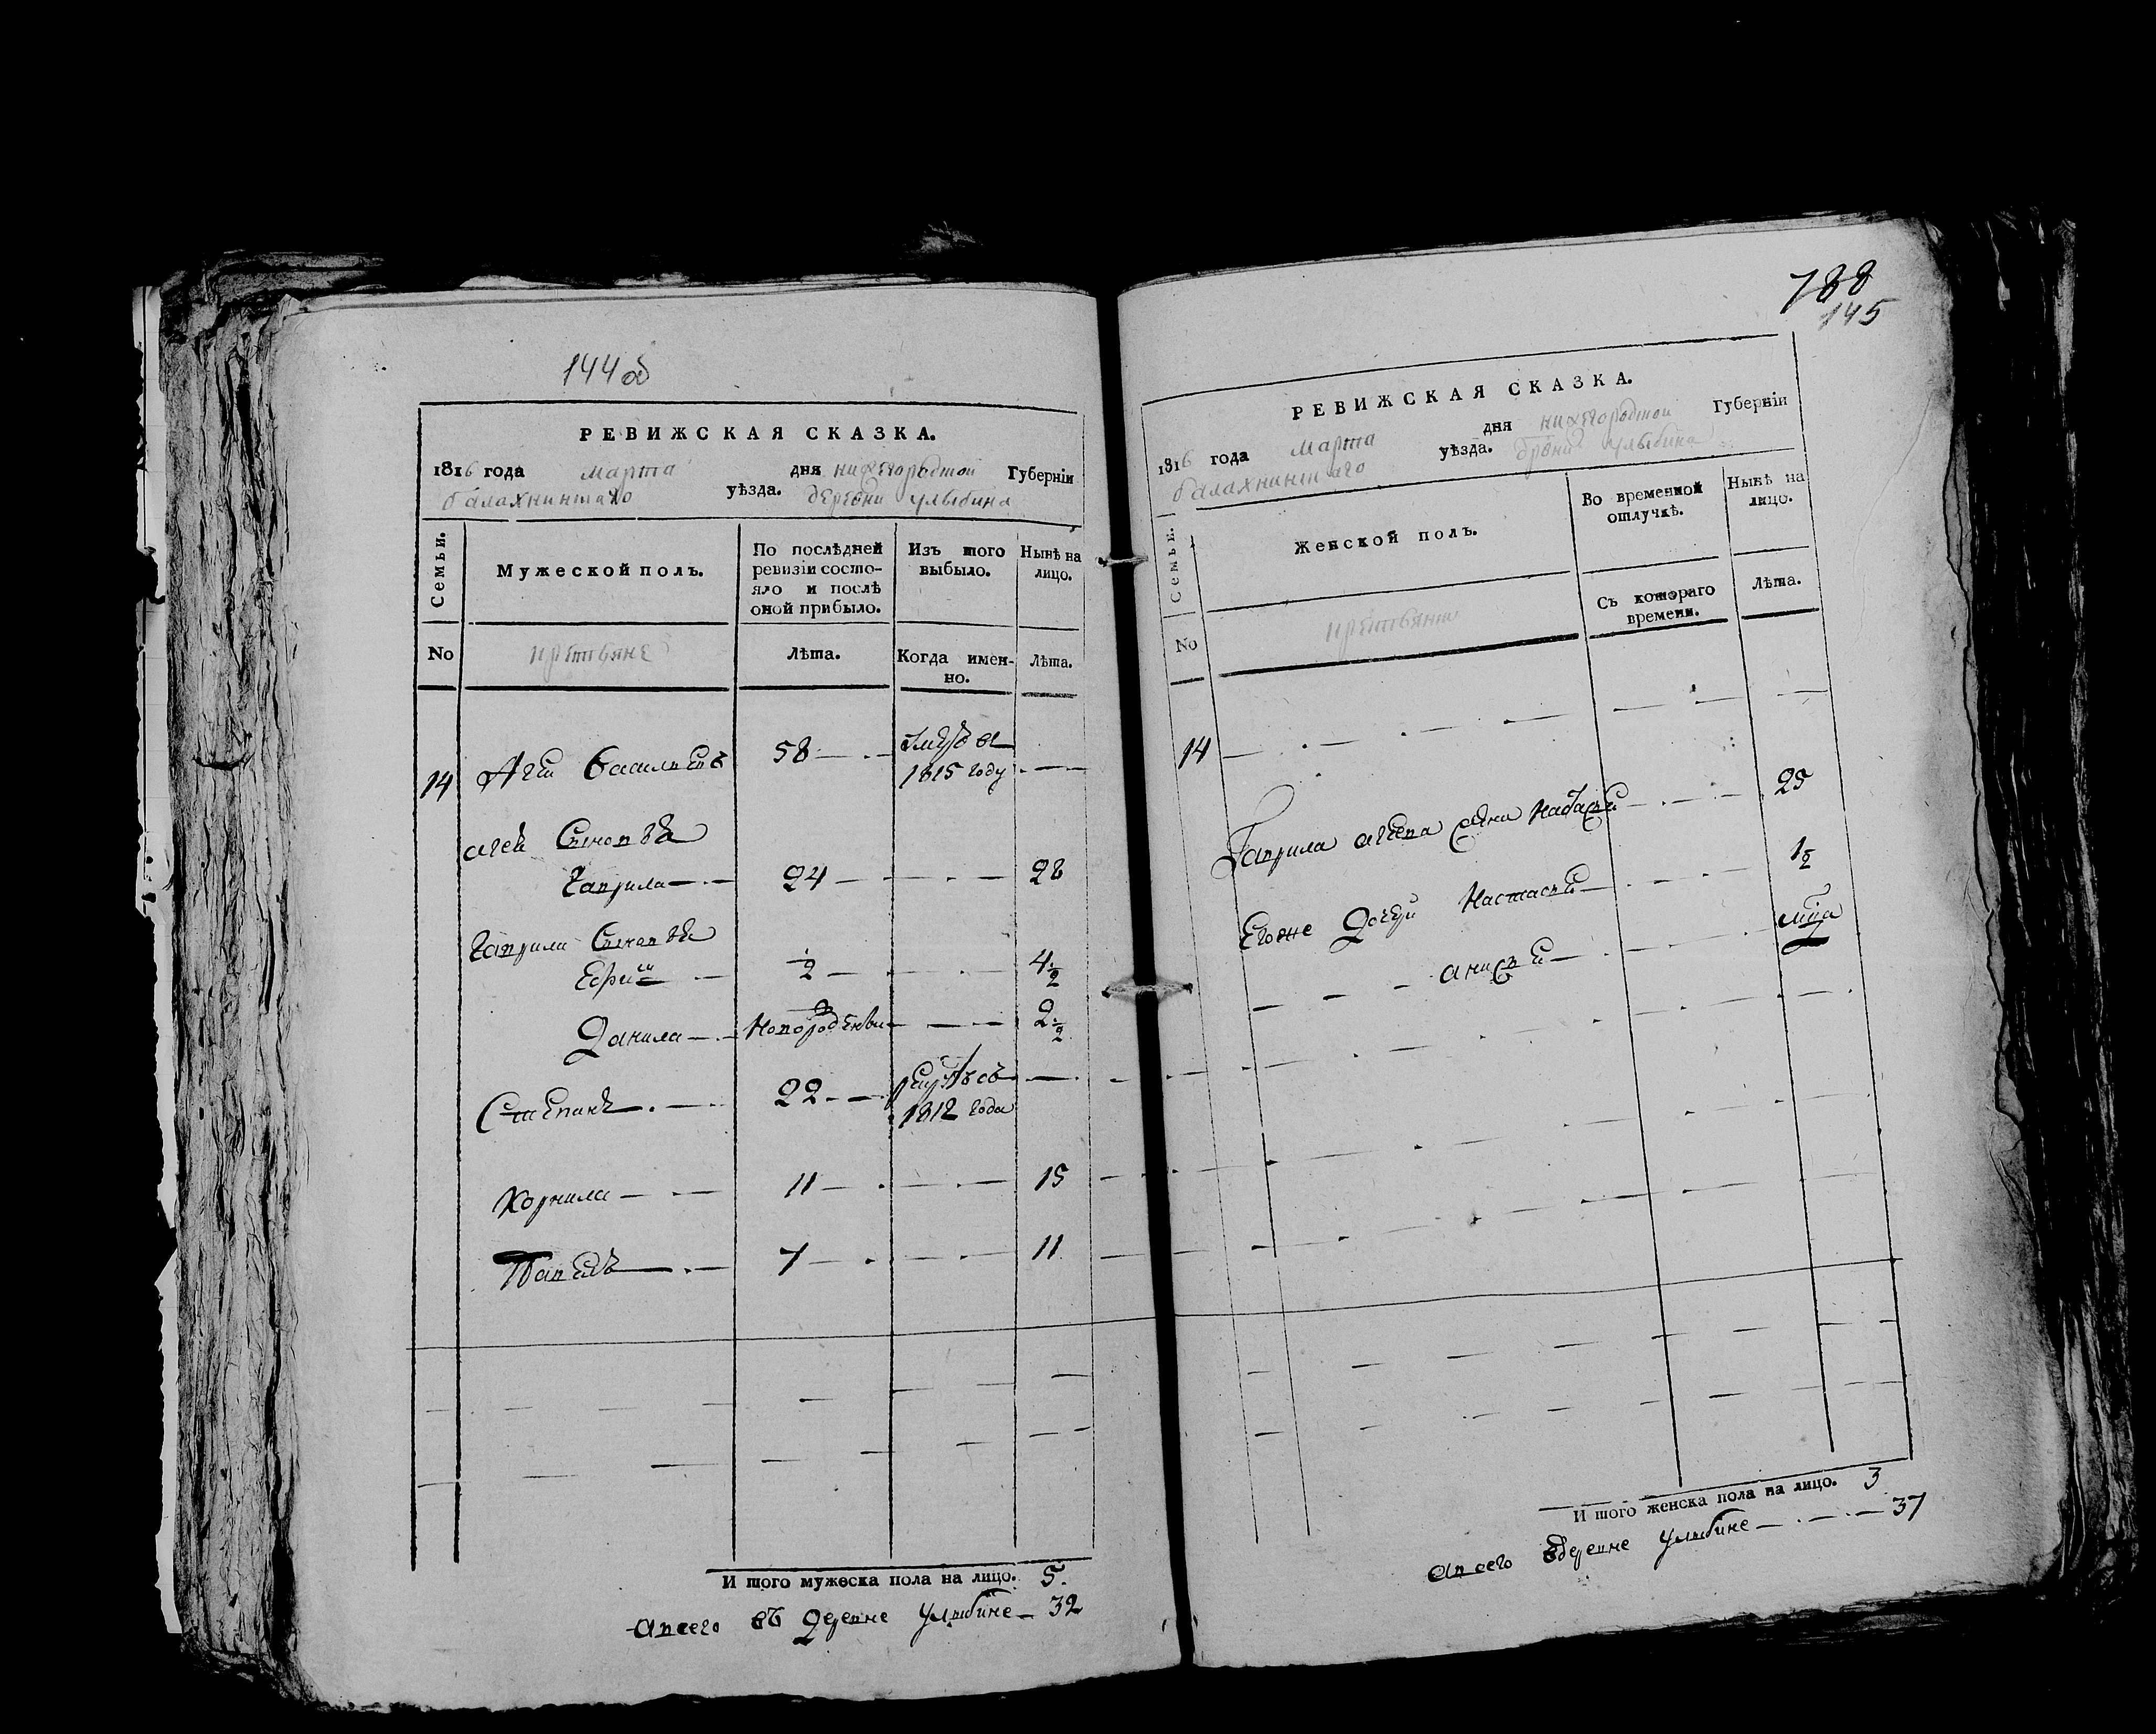 144 об
РЕВИЖСКАЯ СКАЗКА.
1816 года марта дня нижегородской Губерніи
балахнинскаго уѣзда. деревни улыбина
Семьи.
Мужеской полъ.
По послѣдней ревизіи состояло и послѣ оной прибыло.
Изъ того выбыло.
Нынѣ на лицо.
No
крестьяне
Лѣта.
Когда именно.
Лѣта.
14 Агей Васильевъ 58 умре в 1815 году
агея Сыновья
Гаврила 24 28
Гаврилы Сыновья
Ефим ½ 4½
Данила новорожден 2½
Степанъ 22 1812 года
Корнила 11 15
Павелъ 7 11
И того мужеска пола на лицо. 5.
а всего въ деревне Улыбине 32
788
145
РЕВИЖСКАЯ СКАЗКА.
1816 года марта дня нижегородской Губерніи
балахнинскаго уѣзда. дрвни улыбина
Семьи.
Женской полъ.
Во временной отлучкѣ.
Нынѣ на лицо.
No
крестьяне
Съ котораго времени.
Лѣта.
14
Гаврила агеева жена 25
Еговне Дочери Настасья 1½
анисья
И того женска пола на лицо. 3
а всего вдеревне Улыбине 37